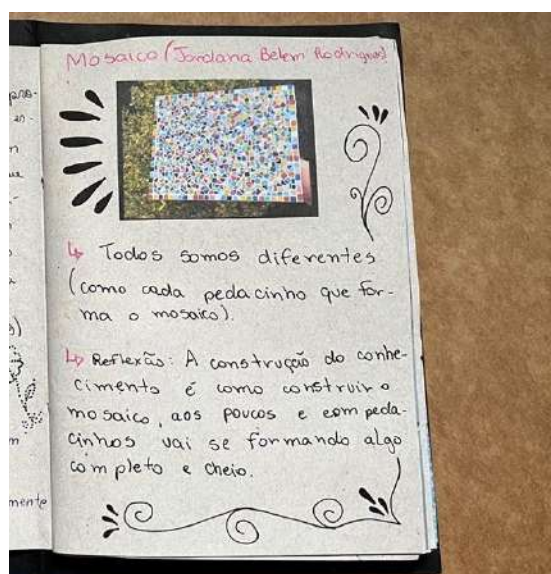 Mosaico (Jordana Belem Rodrigues)
↳ Todos somos diferentes
(como cada pedacinho que for-
ma o mosaico).
↳ Reflexão: A construção do conhe-
cimento é como construir o
mosaico, aos poucos e com peda-
cinhos vai se formando algo
completo e cheio.
mente